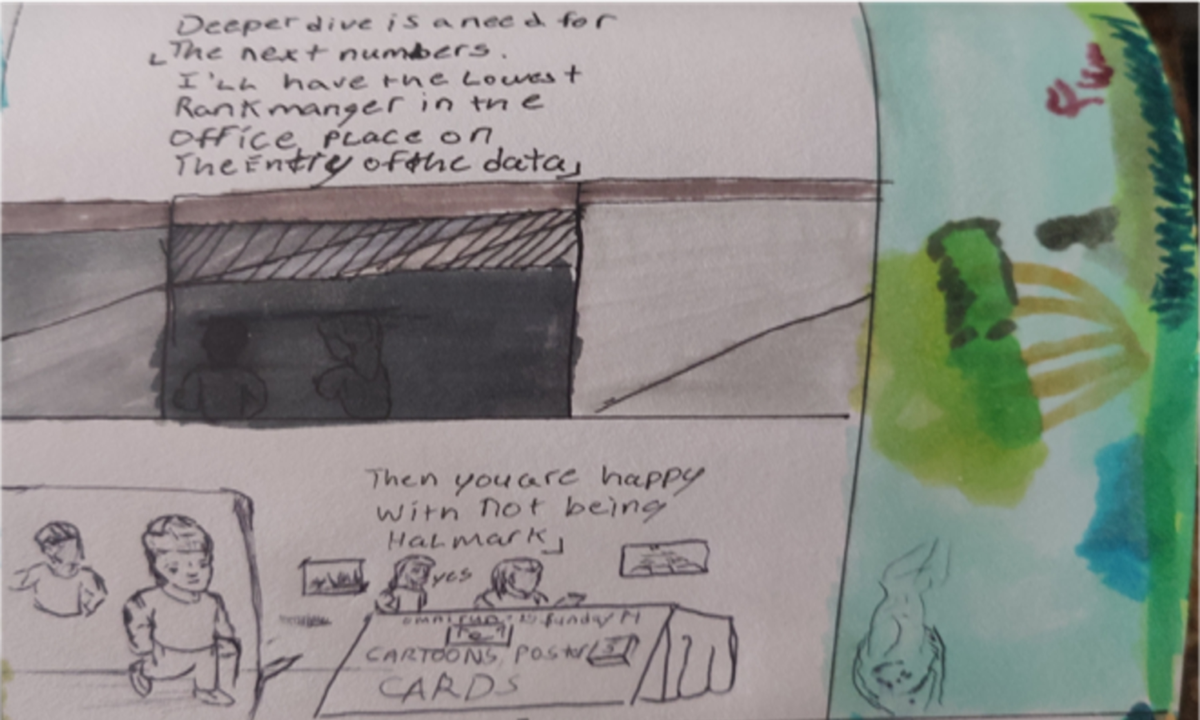 Deeper dive is a need for
The next numbers.
I'LL have the Lowest
Rank manger in the
office place on
The Entry of the data
Then you are happy
with not being
Halmark
yes
CARTOONS, Poster
CARDS